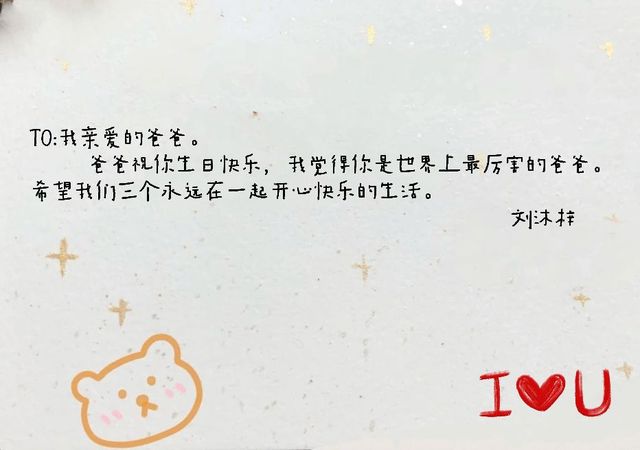 TO:我亲爱的爸爸。
爸爸祝你生日快乐，我觉得你是世界上最厉害的爸爸。
希望我们三个永远在一起开心快乐的生活。
刘沐梓
I❤U